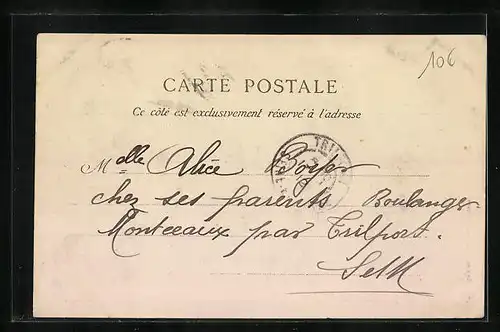 106
CARTE POSTALE
Ce côté est exclusivement réservé à l'adresse
Melle Alice
chez ses parents Boulanger
Montceaux par Trilport.
SetM